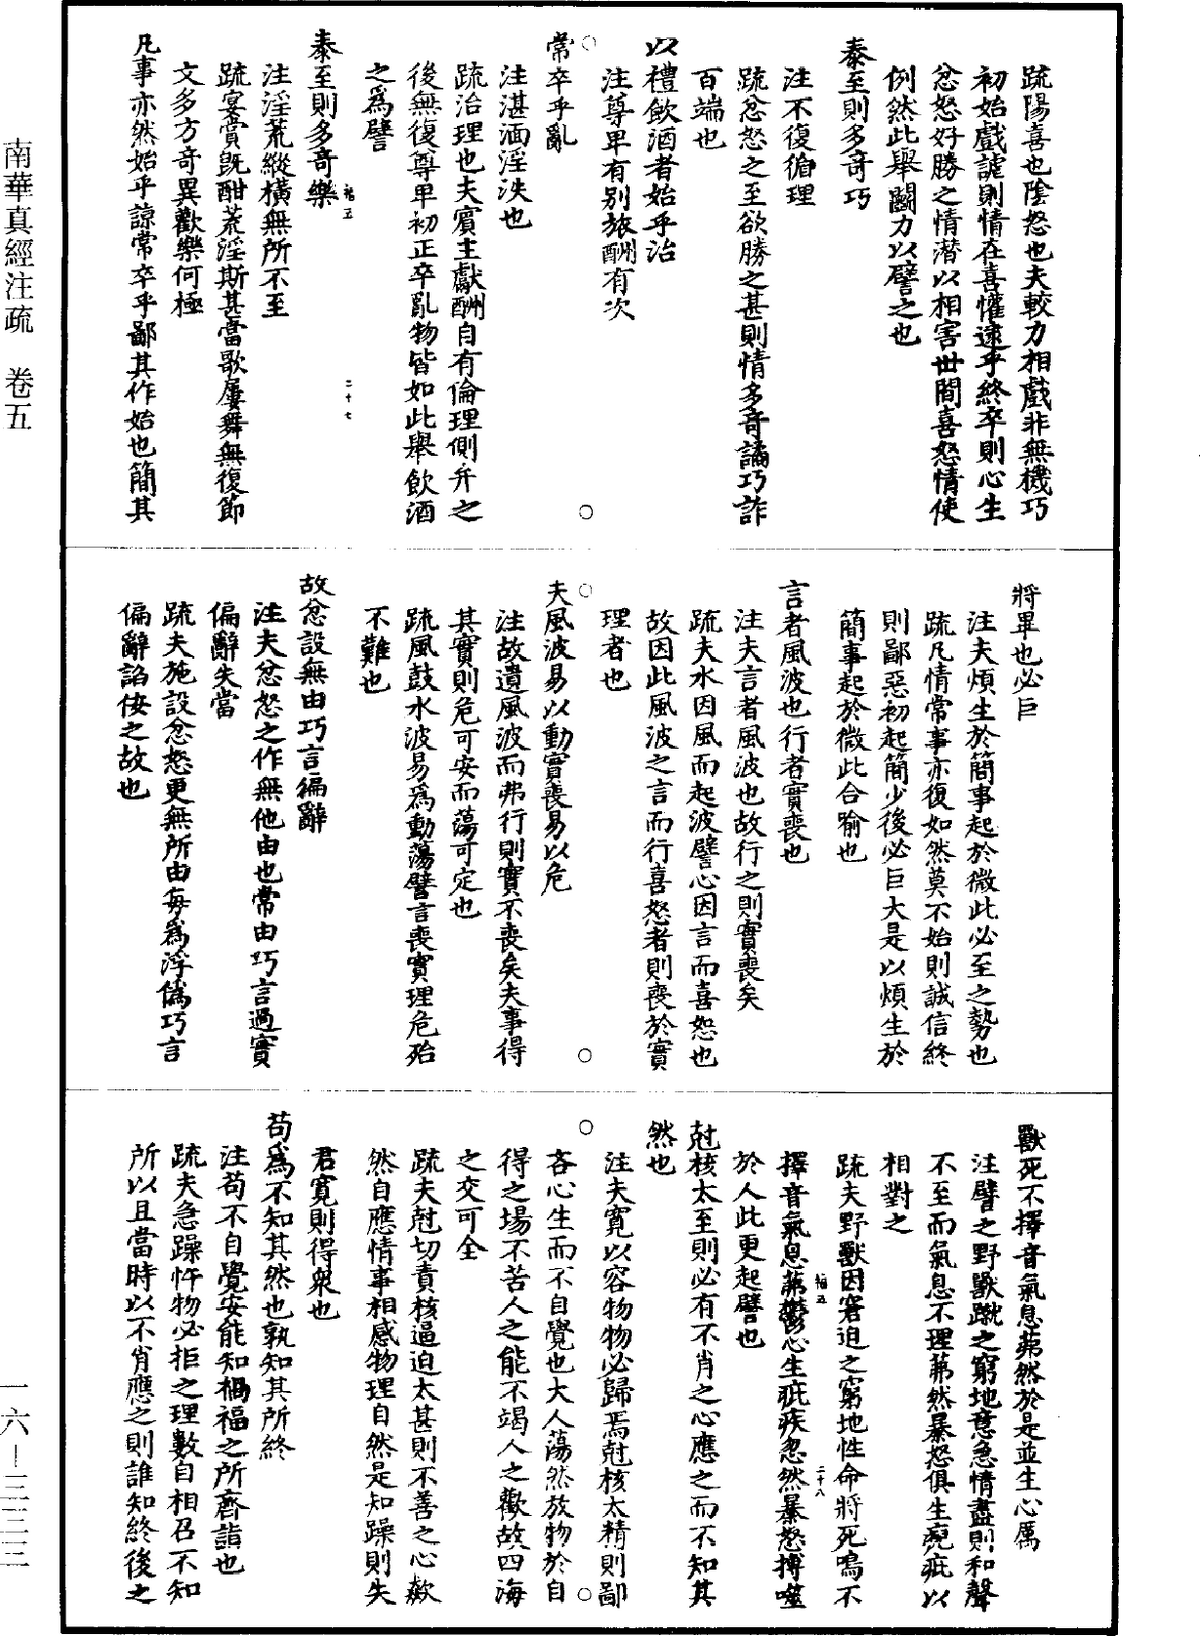 南華真經注疏　卷五
疏陽喜也陰怒也夫較力相戲非無機巧
初始戲謔則情在喜懽逮乎終卒則心生
忿怒好勝之情潛以相害世間喜怒情使
例然此舉鬭力以譬之也
泰至則多奇巧
注不復循理
疏忿怒之至欲勝之甚則情多奇譎巧詐
百端也
以禮飲酒者始乎治
注尊卑有別旅酬有次
常卒乎亂
注湛湎淫泆也
疏治理也夫賓主獻酬自有倫理側弁之
後無復尊卑初正卒亂物皆如此舉飲酒
之為譬
泰至則多奇樂
注淫荒縱橫無所不至
疏宴賞既酣荒淫斯甚當歌屢舞無復節
文多方奇異歡樂何極
凡事亦然始乎諒常卒乎鄙其作始也簡其
二十七
將畢也必巨
注夫煩生於簡事起於微此必至之勢也
疏凡情常事亦復如然莫不始則誠信終
則鄙惡初起簡少後必巨大是以煩生於
簡事起於微此合喻也
言者風波也行者實喪也
注夫言者風波也故行之則實喪矣
疏夫水因風而起波譬心因言而喜怒也
故因此風波之言而行喜怒者則喪於實
理者也
夫風波易以動實喪易以危
注故遺風波而弗行則實不喪矣夫事得
其實則危可安而蕩可定也
疏風鼓水波易為動蕩譬言喪實理危殆
不難也
故忿設無由巧言偏辭
注夫忿怒之作無他由也常由巧言過實
偏辭失當
疏夫施設忿怒更無所由每為浮偽巧言
偏辭諂佞之故也
獸死不擇音氣息茀然於是並生心厲
注譬之野獸蹴之窮地意急情盡則和聲
不至而氣息不理茀然暴怒俱生疻疵以
相對之
疏夫野獸因窘迫之窮地性命將死鳴不
擇音氣息茀鬱心生疵疾忽然暴怒搏噬
於人此更起譬也
剋核太至則必有不肖之心應之而不知其
然也
注夫寬以容物物必歸焉剋核太精則鄙
吝心生而不自覺也大人蕩然放物於自
得之場不苦人之能不竭人之歡故四海
之交可全
疏夫剋切責核逼迫太甚則不善之心歘
然自應情事相感物理自然是知躁則失
君寬則得衆也
苟為不知其然也孰知其所終
注苟不自覺安能知禍福之所齊詣也
疏夫急躁忤物必拒之理數自相召不知
所以且當時以不肖應之則誰知終後之
二十八
一六—三三三